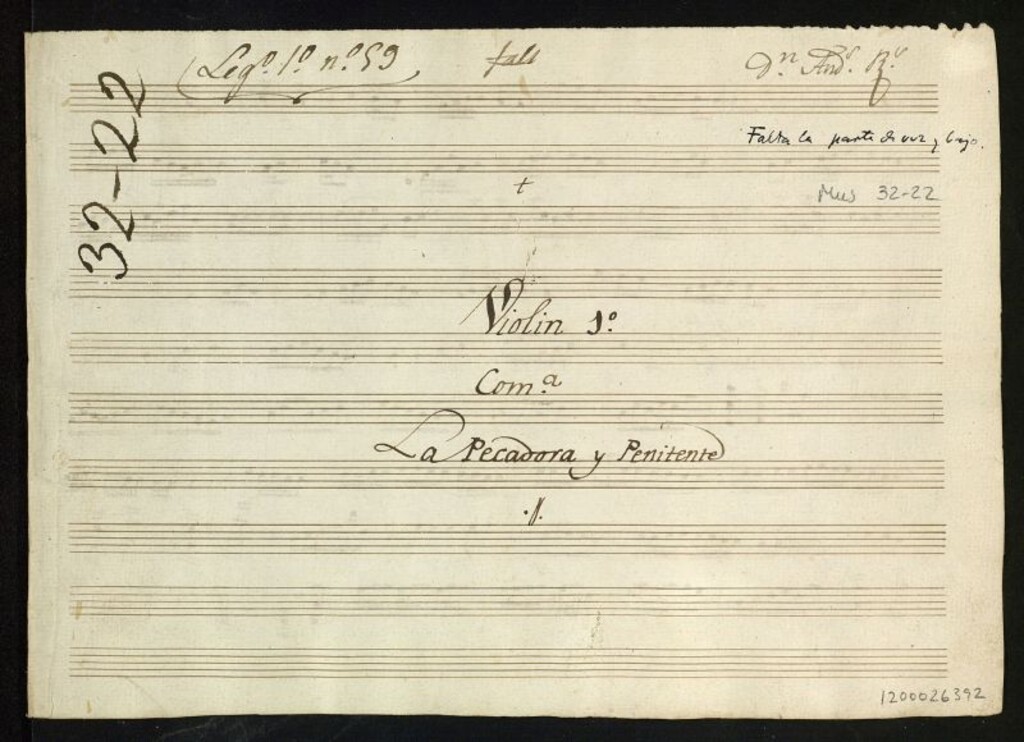 Leg.º 1.º n.º 59
falt
D.n And.s R.s
32-22
Falta la parte de voz y bajo.
+
Mus 32-22
Violin 1.º
Com.ª
La Pecadora y Penitente
1200026392